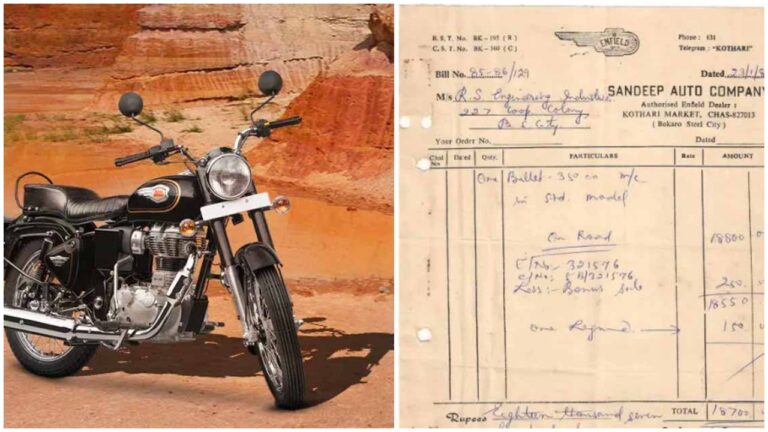 B. S. T. No. BK - 195 ( R )
C. S. T. No. BK - 160 ( C )
ENFIELD
Phone : 631
Telegram : "KOTHARI"
Bill No. 85-86/129
Dated 23/1/8
SANDEEP AUTO COMPANY
Authorised Enfield Dealer :
KOTHARI MARKET, CHAS-827013
( Bokaro Steel City )
M/s R.S. Engineering Industries
227 Coop Colony
B S City
Your Order No.
Dated
Chal No. Dated Qnty. PARTICULARS Rate AMOUNT
One Bullet - 350 cc m/c
in Std. model
On Road 18800
E/No:- 321576
C/No:- 321576
Less:- Bonus 250
18550
One 150
TOTAL 18700
Rupees Eighteen thousand seven